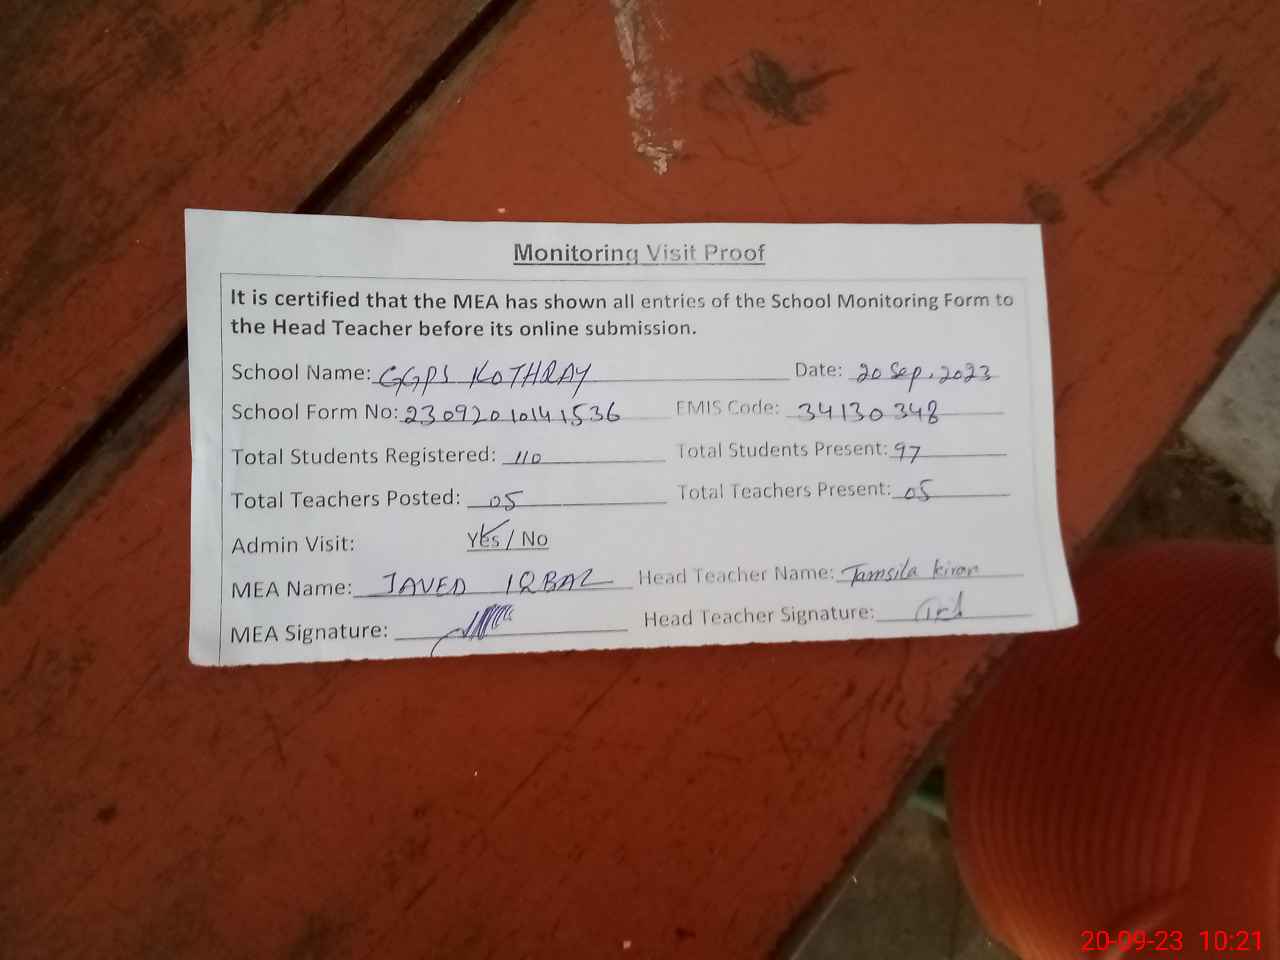 Monitoring Visit Proof
It is certified that the MEA has shown all entries of the School Monitoring Form to
the Head Teacher before its online submission.
School Name: GGPS KOTHRAY Date: 20 Sep. 2023
School Form No: 23092010141536 EMIS Code: 34130348
Total Students Registered: 110 Total Students Present: 97
Total Teachers Posted: 05 Total Teachers Present: 05
Admin Visit: Yes / No
MEA Name: JAVED IQBAL Head Teacher Name: Tamsila Kiran
MEA Signature: Head Teacher Signature:
20-09-23 10:21